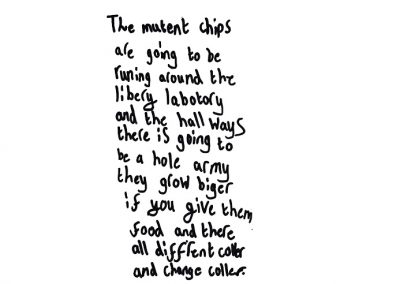 The mutent chips
are going to be
runing around the
libery labotory
and the hall ways
there is going to
be a hole army
they grow biger
if you give them
food and there
all diffrent coller
and change coller.